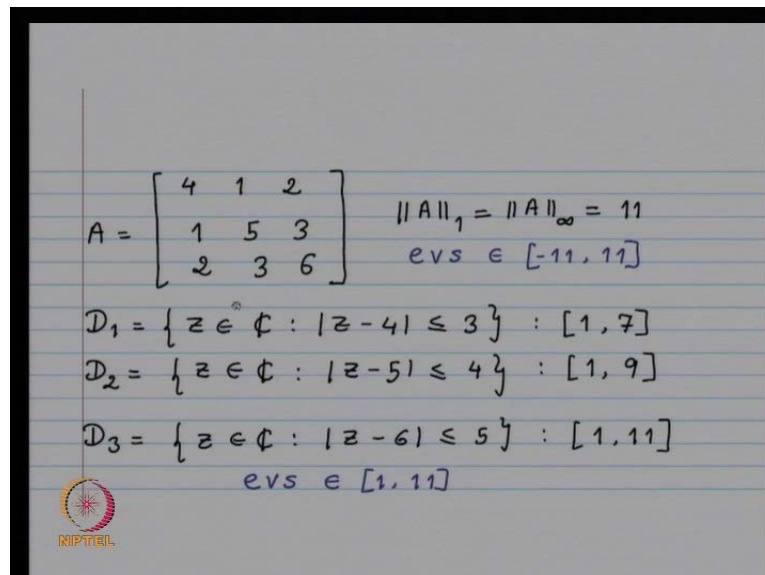 A = [ 4 1 2 ; 1 5 3 ; 2 3 6 ] ||A||₁ = ||A||∞ = 11
evs ∈ [-11, 11]
D₁ = { z ∈ ℂ : |z - 4| ≤ 3 } : [1, 7]
D₂ = { z ∈ ℂ : |z - 5| ≤ 4 } : [1, 9]
D₃ = { z ∈ ℂ : |z - 6| ≤ 5 } : [1, 11]
evs ∈ [1, 11]
NPTEL